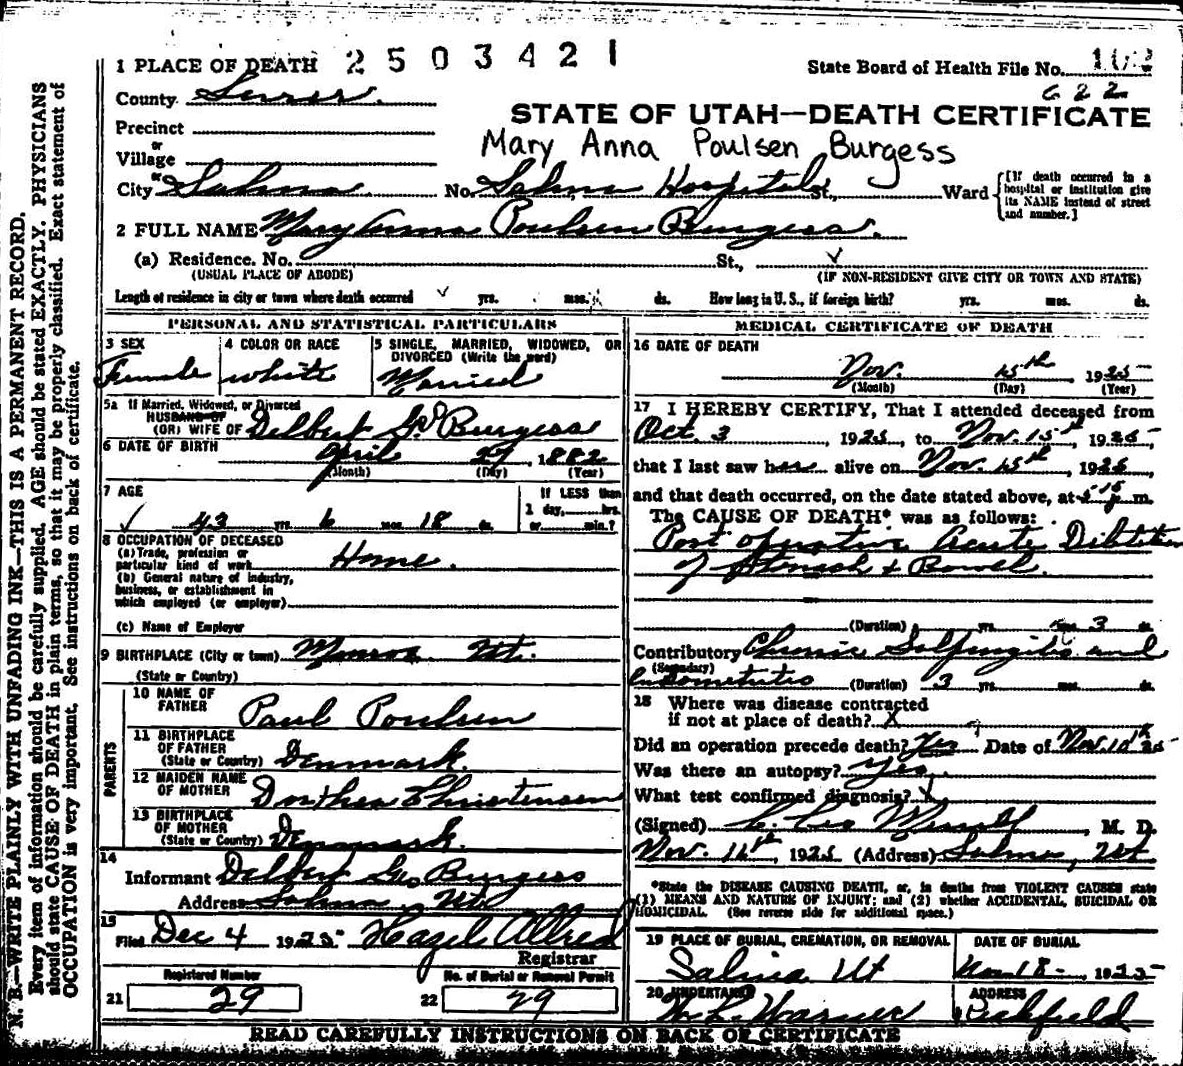 1 PLACE OF DEATH 2503421
State Board of Health File No. 102
622
County Sevier.
STATE OF UTAH—DEATH CERTIFICATE
Precinct
or
Village
Mary Anna Poulsen Burgess
or
City Salina No. Salina Hospital St., Ward
[If death occurred in a hospital or institution give its NAME instead of street and number.]
2 FULL NAME Mary Anna Poulsen Burgess.
(a) Residence. No. St.,
(USUAL PLACE OF ABODE) (IF NON-RESIDENT GIVE CITY OR TOWN AND STATE)
Length of residence in city or town where death occurred yrs. mos. ds. How long in U. S., if foreign birth? yrs. mos. ds.
PERSONAL AND STATISTICAL PARTICULARS
3 SEX
Female
4 COLOR OR RACE
white
5 SINGLE, MARRIED, WIDOWED, OR DIVORCED (Write the word)
Married
5a If Married, Widowed, or Divorced
HUSBAND OF
(OR) WIFE OF Delbert G Burgess
6 DATE OF BIRTH April 27 1882
(Month) (Day) (Year)
7 AGE
43 yrs. 6 mos. 18 ds.
If LESS than
1 day, hrs.
or min.?
8 OCCUPATION OF DECEASED
(a) Trade, profession or
particular kind of work Home.
(b) General nature of industry,
business, or establishment in
which employed (or employer)
(c) Name of Employer
9 BIRTHPLACE (City or town) Monroe Ut.
(State or Country)
PARENTS
10 NAME OF
FATHER Paul Poulsen
11 BIRTHPLACE
OF FATHER
(State or Country) Denmark.
12 MAIDEN NAME
OF MOTHER Dorthea Christensen
13 BIRTHPLACE
OF MOTHER
(State or Country) Denmark.
14
Informant Delbert Geo Burgess
Address Salina Ut.
15
Filed Dec 4 1925 Hazel Allred
Registrar
Registered Number
21 29
No. of Burial or Removal Permit
22 29
MEDICAL CERTIFICATE OF DEATH
16 DATE OF DEATH
Nov. 15th 1925
(Month) (Day) (Year)
17 I HEREBY CERTIFY, That I attended deceased from
Oct 3, 1925, to Nov. 15th, 1925,
that I last saw her alive on Nov. 15th, 1925,
and that death occurred, on the date stated above, at p. m.
The CAUSE OF DEATH* was as follows:
Post operative Acute Dilitation
of Stomach & Bowel.
(Duration) yrs. mos. 3 ds.
Contributory Chronic Salpingitis and
(Secondary)
Endometritis (Duration) 3 yrs. mos. ds.
18 Where was disease contracted
if not at place of death? X
Did an operation precede death? Yes Date of Nov. 10th 25
Was there an autopsy? Yes.
What test confirmed diagnosis? X
(Signed) , M. D.
Nov. 16th, 1925 (Address) Salina, Ut
*State the DISEASE CAUSING DEATH, or, in deaths from VIOLENT CAUSES state
(1) MEANS AND NATURE OF INJURY; and (2) whether ACCIDENTAL, SUICIDAL OR
HOMICIDAL. (See reverse side for additional space.)
19 PLACE OF BURIAL, CREMATION, OR REMOVAL
Salina Ut
DATE OF BURIAL
Nov 18- 1925
20 UNDERTAKER
Warner
ADDRESS
Richfield
READ CAREFULLY INSTRUCTIONS ON BACK OF CERTIFICATE
N. B.—WRITE PLAINLY WITH UNFADING INK—THIS IS A PERMANENT RECORD.
Every item of information should be carefully supplied. AGE should be stated EXACTLY. PHYSICIANS
should state CAUSE OF DEATH in plain terms, so that it may be properly classified. Exact statement of
OCCUPATION is very important. See instructions on back of certificate.